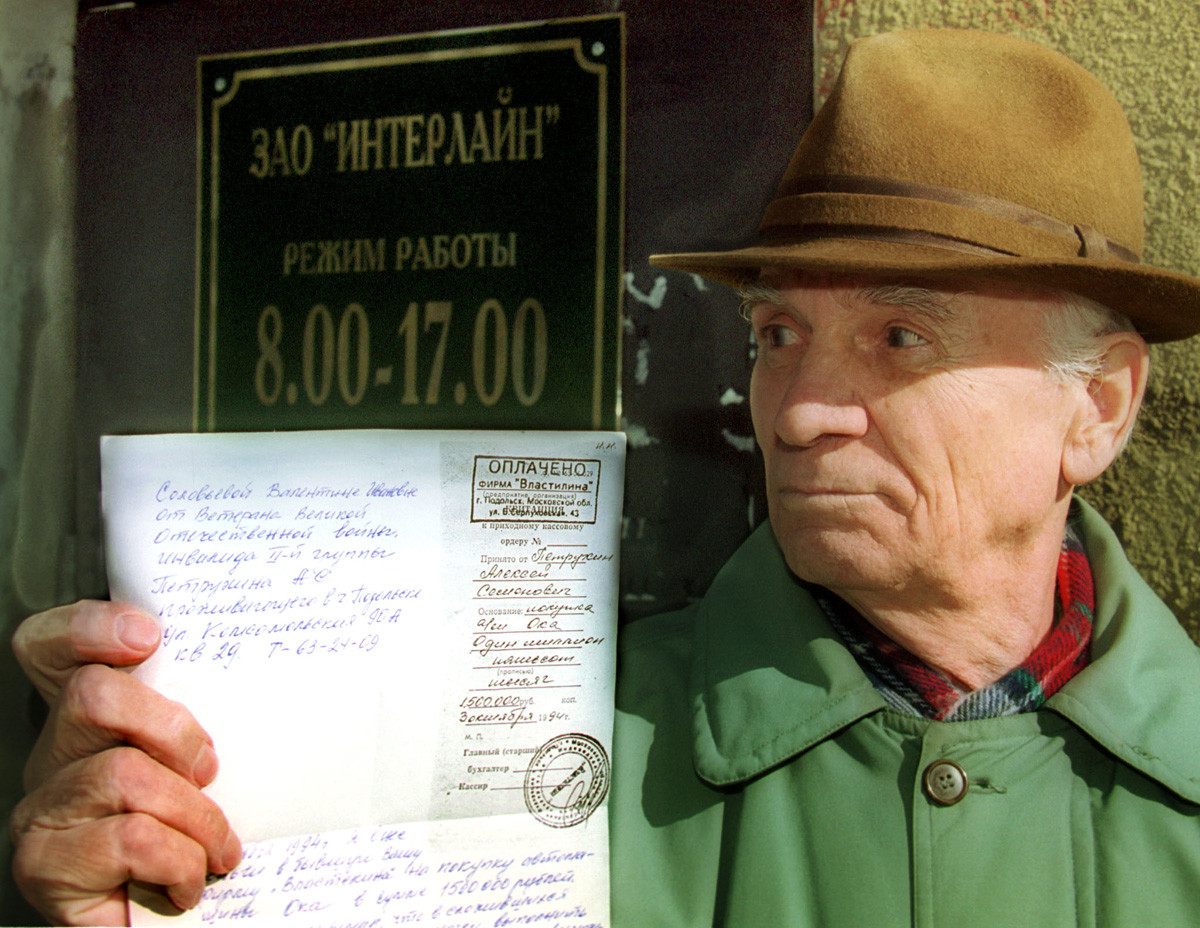 ЗАО "ИНТЕРЛАЙН"
РЕЖИМ РАБОТЫ
8.00-17.00
Соловьевой Валентине Ивановне
От Ветерана Великой
Отечественной войны,
инвалида II-й группы
Петрухина А С
проживающего в г Подольске
ул Комсомольская 90А
кв 29 Т-63-24-09
ОПЛАЧЕНО
ФИРМА "Властилина"
(предприятие, организация)
г. Подольск, Московской обл.
ул. Б. Серпуховская, 43
КВИТАНЦИЯ
к приходному кассовому
ордеру №
Принято от Петрухин
Алексей
Семенович
Основание: покупка
а/м Ока
Один миллион
пятьсот
(прописью)
тысяч
1500.000 руб. коп.
3 октября 1994 г.
М. П.
Главный (старший)
бухгалтер
Кассир
1994г. я
в бывшую Вашу
фирму "Властилина" на покупку автома-
шины Ока в сумме 1500 000 рублей.
что в сложившихся
выполнить